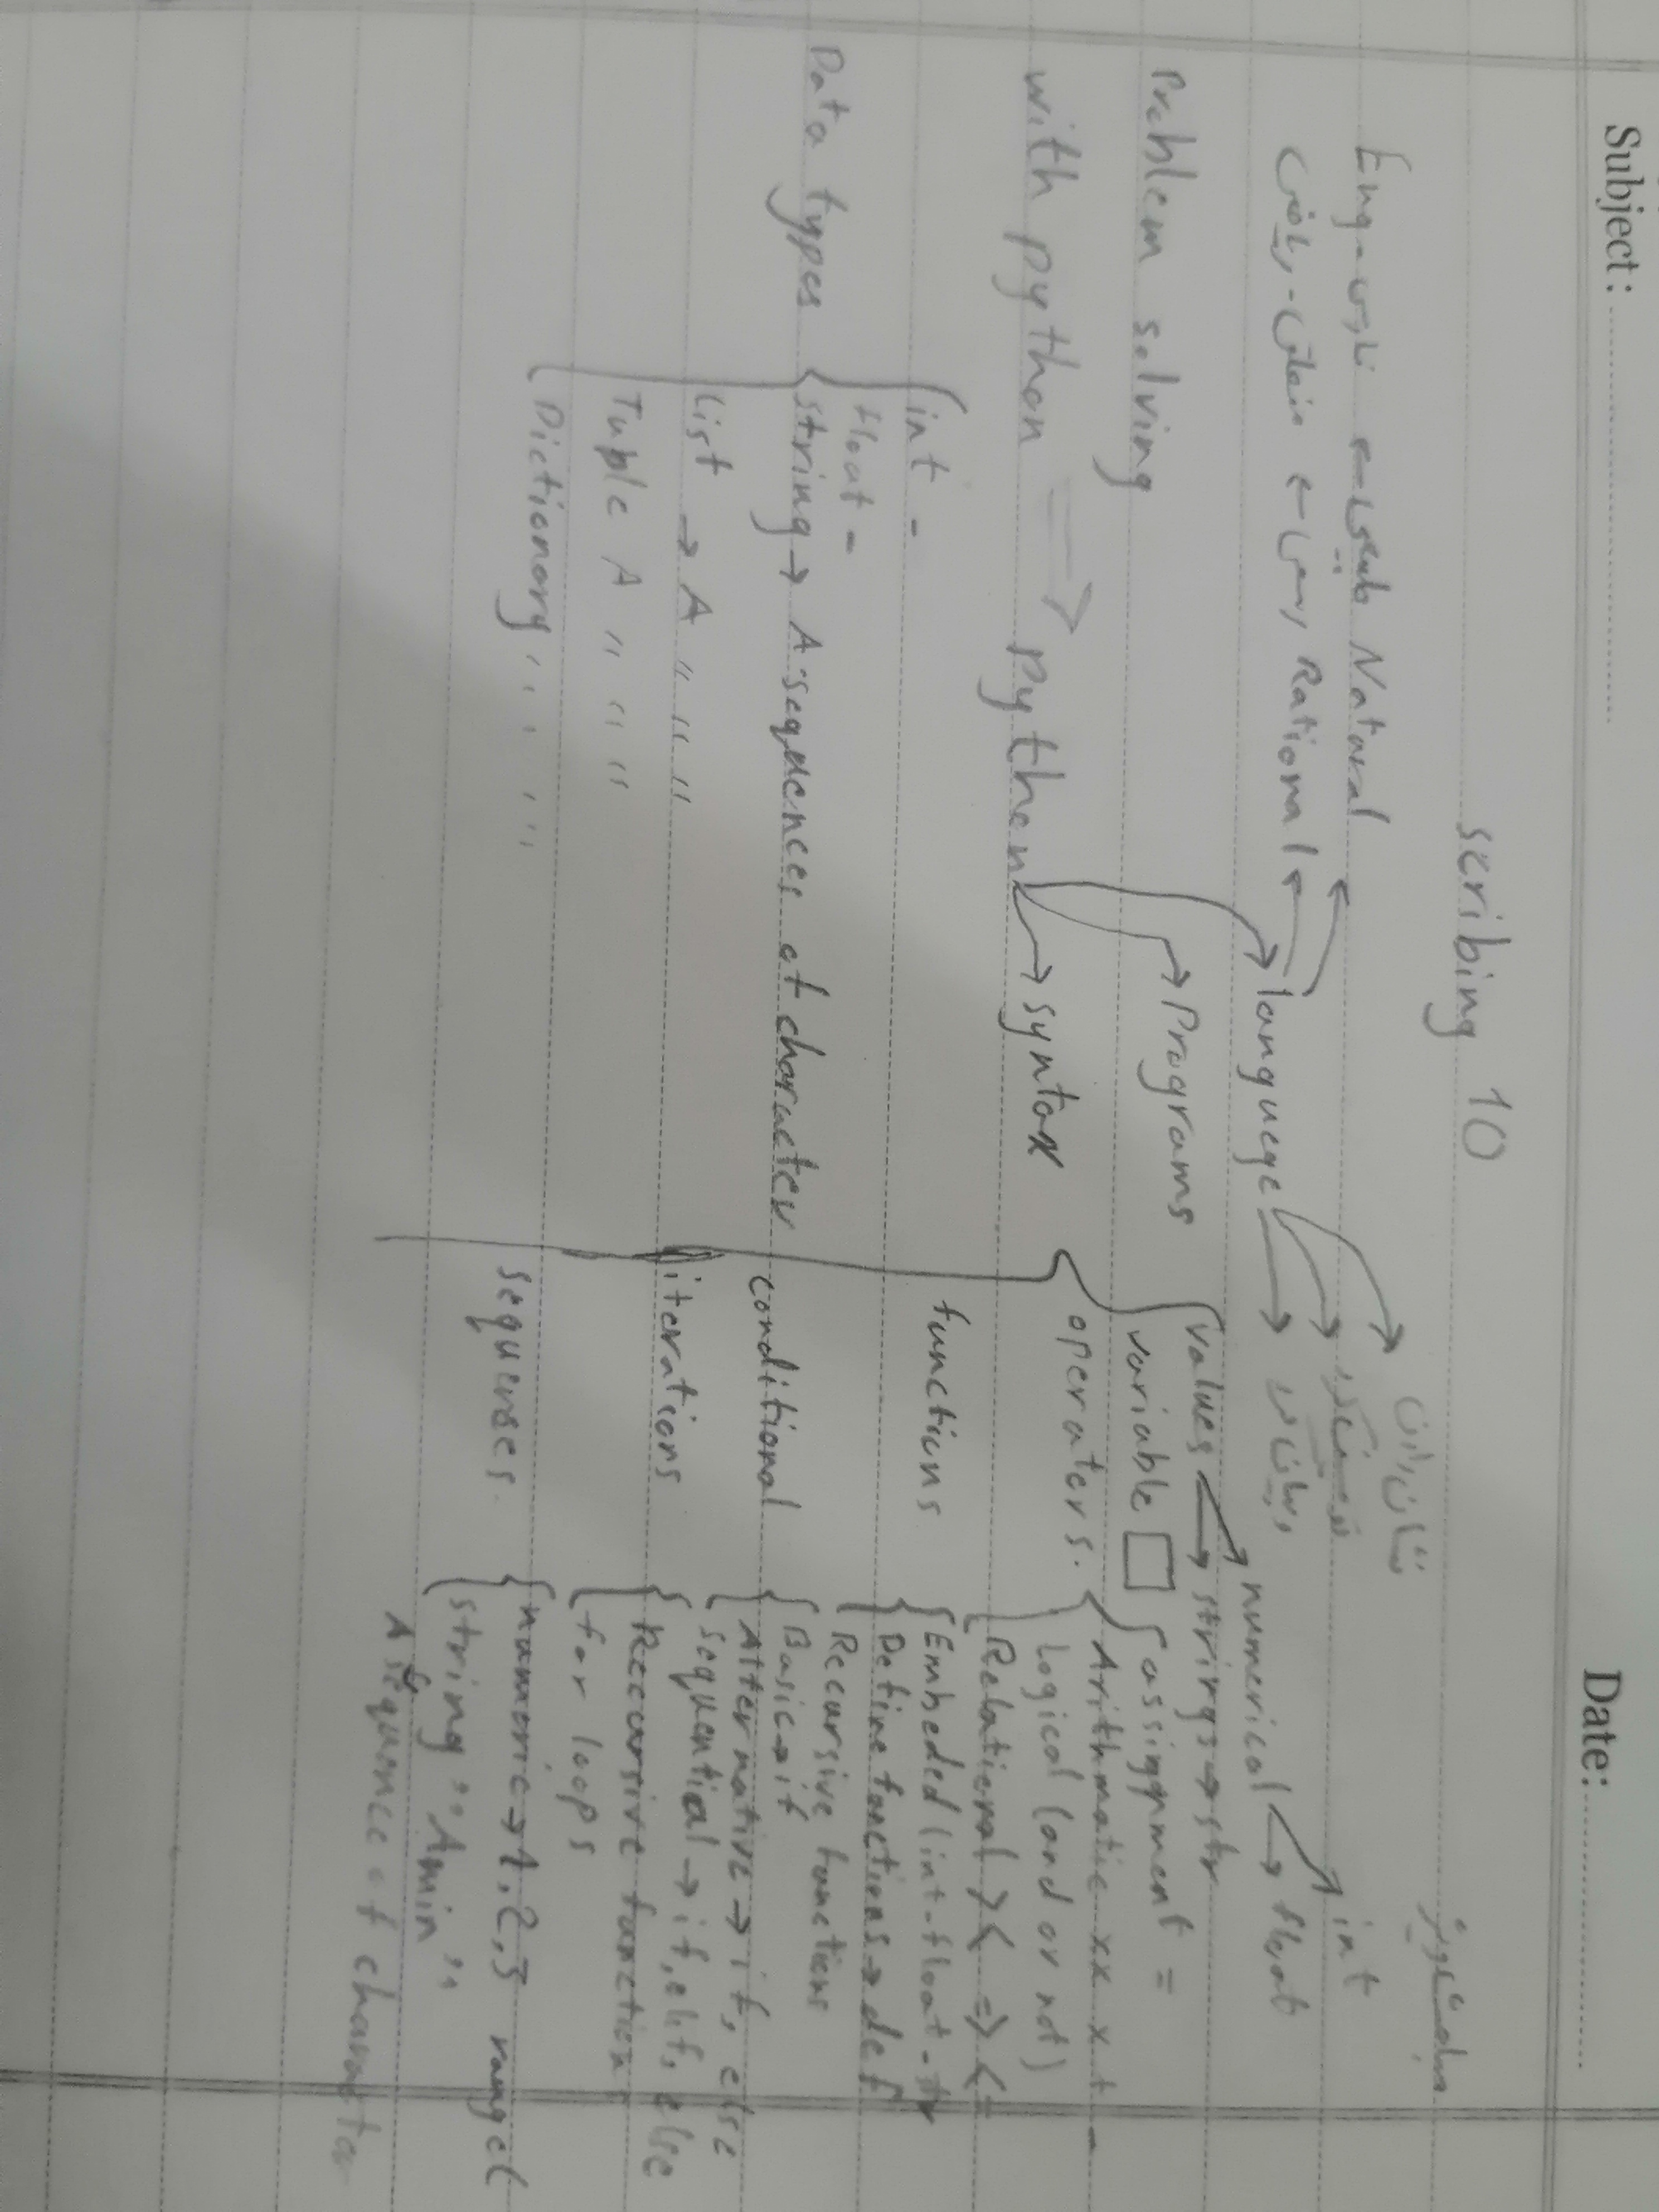 Subject: Date:
scribing 10
Eng - فارسی ← Natural
ریاضی - ← Rational
نشان دادن
Problem solving
with python ⇒ python
language
Programs
syntax
values
numerical
int
float
strings → str
variable □
assigpment =
operators.
Arithmatic xx x + -
Logical (and or not)
Relational > < => <=
functions
Embeded (int - float - str
Define functions → def
Recursive functions
conditional
Basic → if
Alternative → if, else
sequential → if, elif, else
iterations
Reecursive function
for loops
sequenses.
numeric → 1,2,3 range(
string "Amin"
A sequence of character
Data types
int -
float -
string → A sequences of character
List → A " " "
Tuple A " " "
Dictionary " " " "